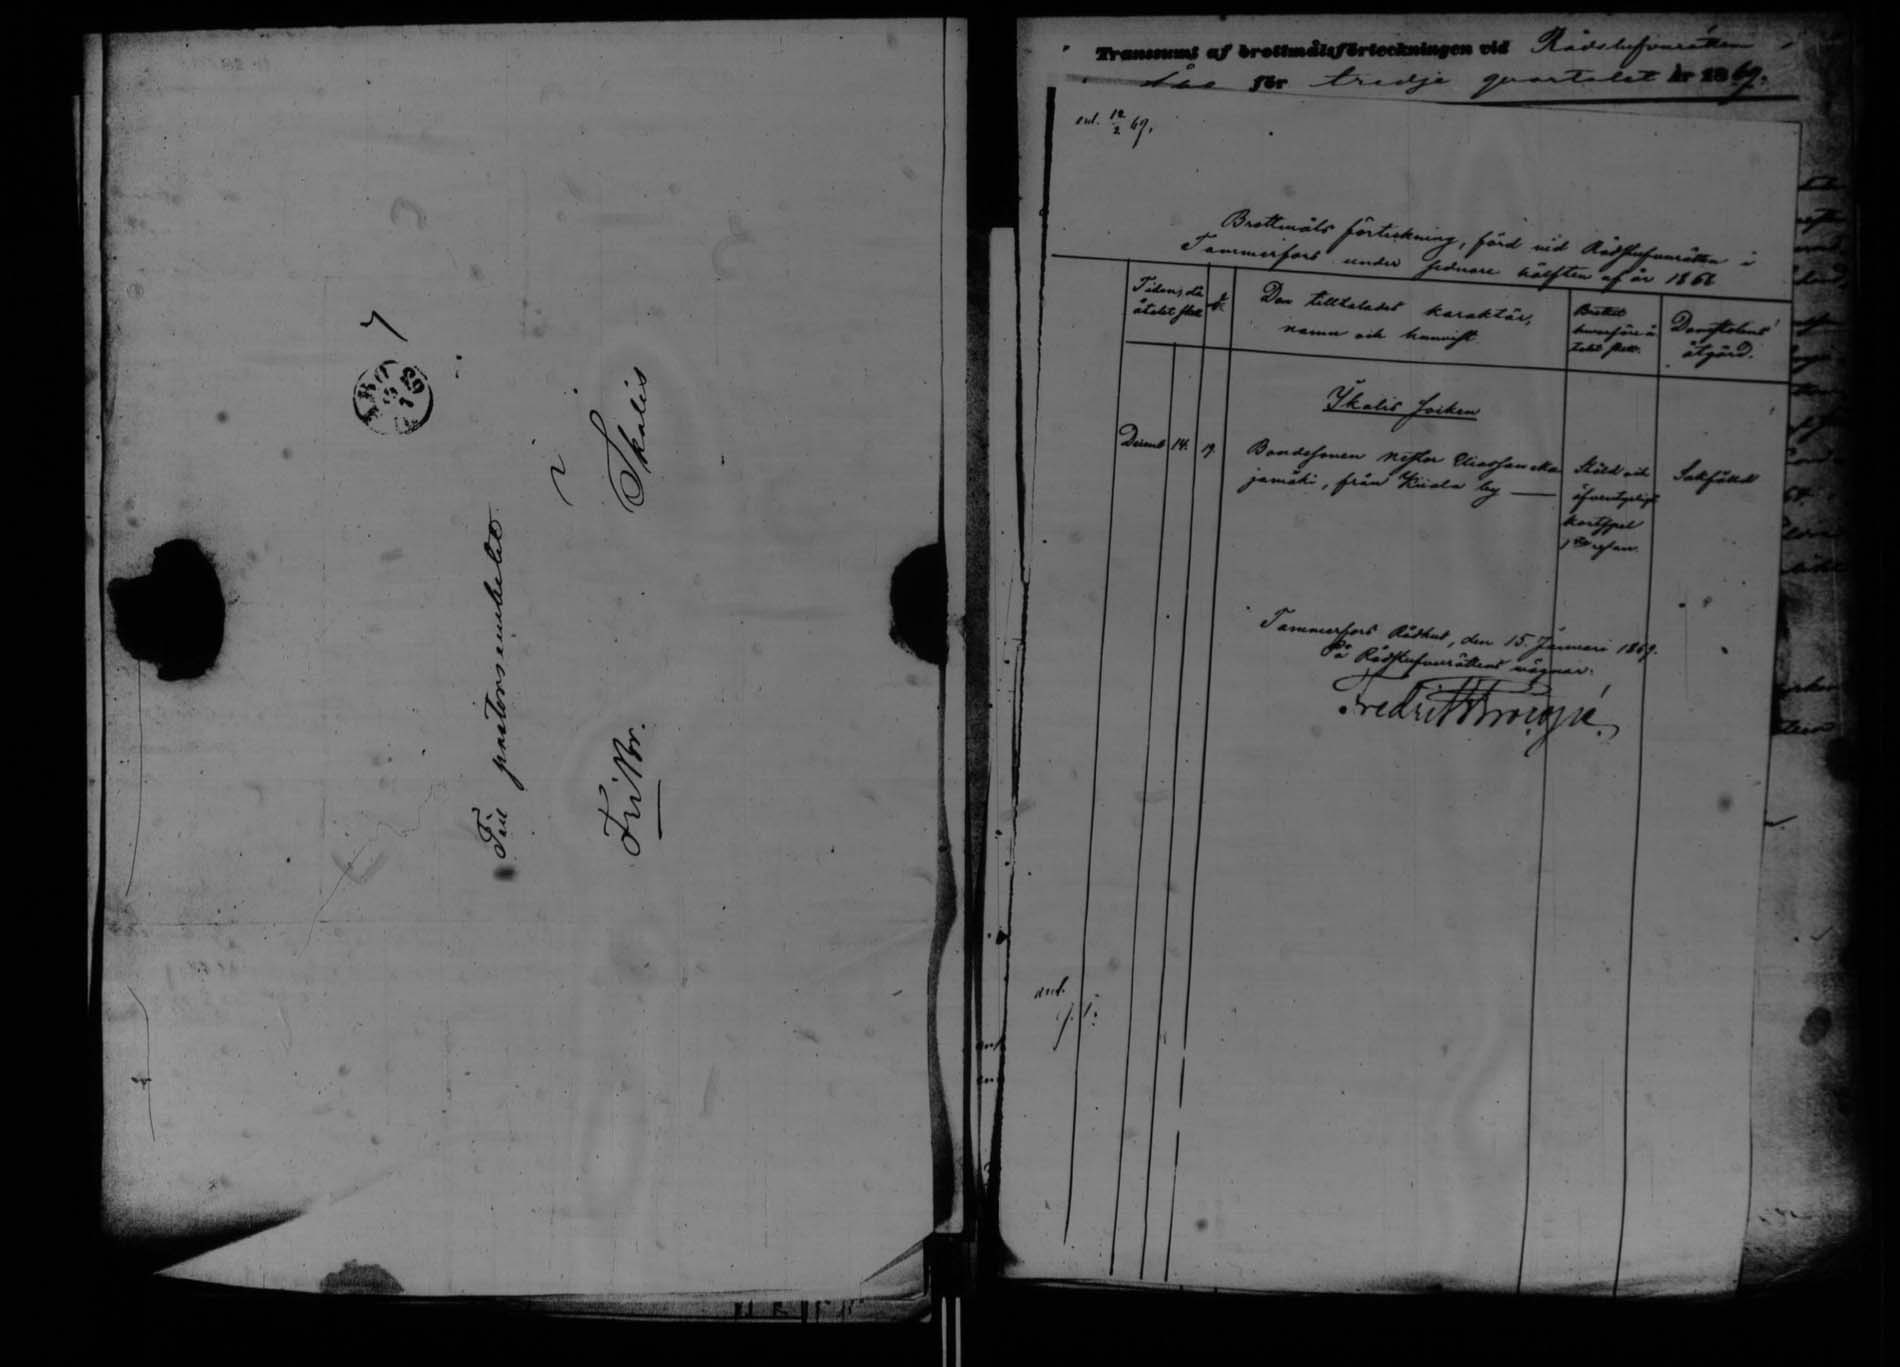 7
ÅBO
Till pastorsembetet
i
Ikalis
Fri Br.
Transsumt af brottmålsförteckningen vid Rådstufvurätten
för tredje quartalet år 1869.
ank. 12/2 69.
Brottmåls förteckning, förd vid Rådstufvurätten i
Tammerfors under sednare hälften af år 1868
Tiden, då
åtalet skett
Den tilltalades karaktär,
namn och hemvist
Brottet
hvarföre å-
talet skett.
Domstolens
åtgärd.
Ikalis socken
Decemb. 14. 19. Bondesonen Nestor Eliasson
jamäki, från by —
Stöld och
äfventyrligt
kortspel
1sta resan.
Sakfälld
Tammerfors Rådhus, den 15 Januari 1869.
På Rådstufvurättens vägnar:
Fredrik